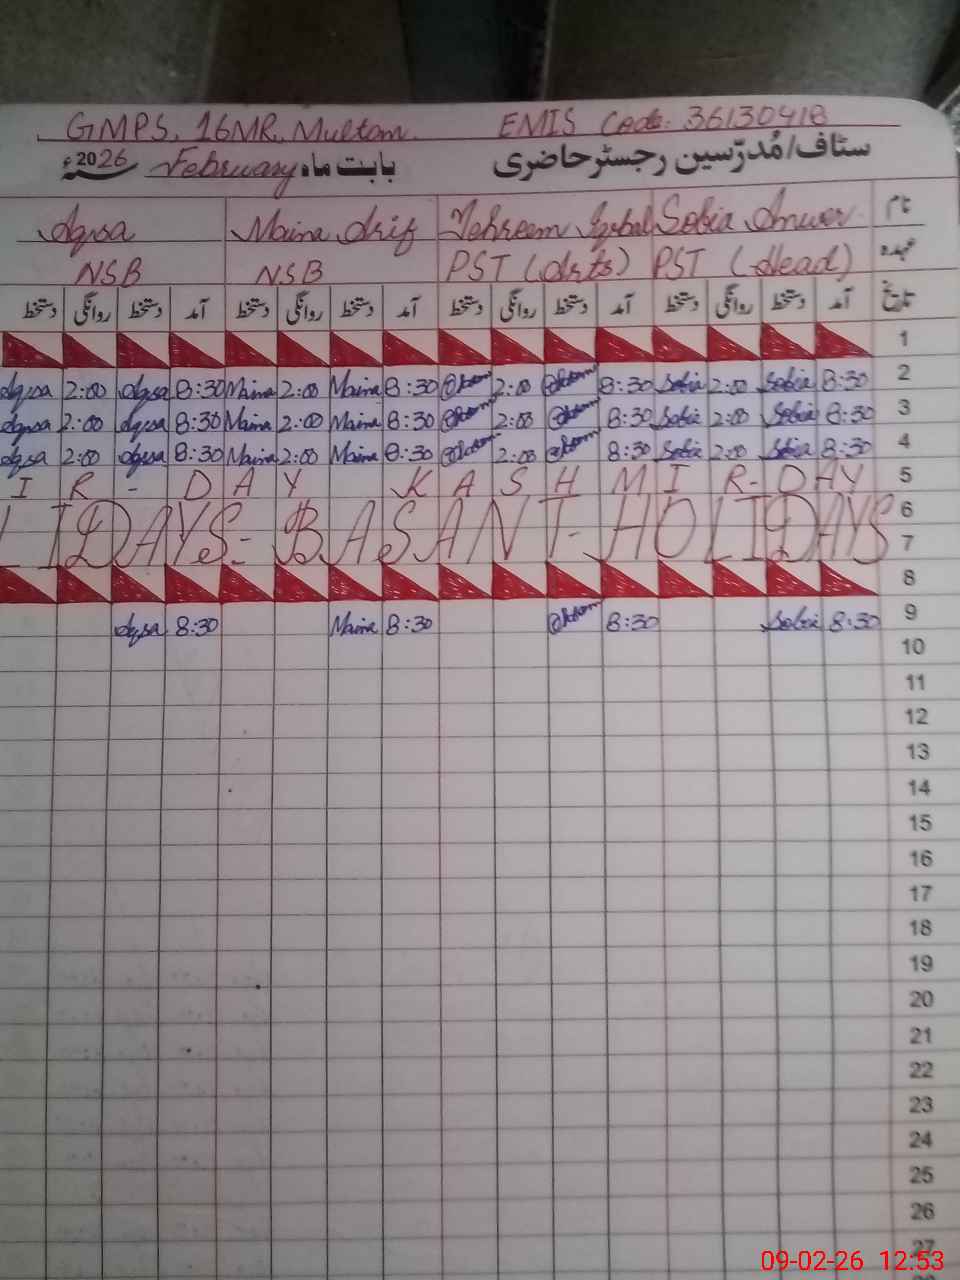 GMPS, 16MR, Multan. EMIS Code: 36130418
سٹاف/مُدرّسین رجسٹر حاضری بابت ماہ February سنہ 2026ء
نام Sobia Anwer Tehreem Iqbal Maina Arif Aqsa
عہدہ PST (Head) PST (Arts) NSB NSB
تاریخ آمد دستخط روانگی دستخط آمد دستخط روانگی دستخط آمد دستخط روانگی دستخط آمد دستخط روانگی دستخط
1
2 8:30 Sobia 2:00 Sobia 8:30 2:00 8:30 Maina 2:00 Maina 8:30 Aqsa 2:00 Aqsa
3 8:30 Sobia 2:00 Sobia 8:30 2:00 8:30 Maina 2:00 Maina 8:30 Aqsa 2:00 Aqsa
4 8:30 Sobia 2:00 Sobia 8:30 2:00 8:30 Maina 2:00 Maina 8:30 Aqsa 2:00 Aqsa
IR - DAY KASHMIR - DAY 5
LIDAYS - BASANT - HOLIDAYS 6
7
8
9 8:30 Sobia 8:30 8:30 Maina 8:30 Aqsa
10
11
12
13
14
15
16
17
18
19
20
21
22
23
24
25
26
27
09-02-26 12.53